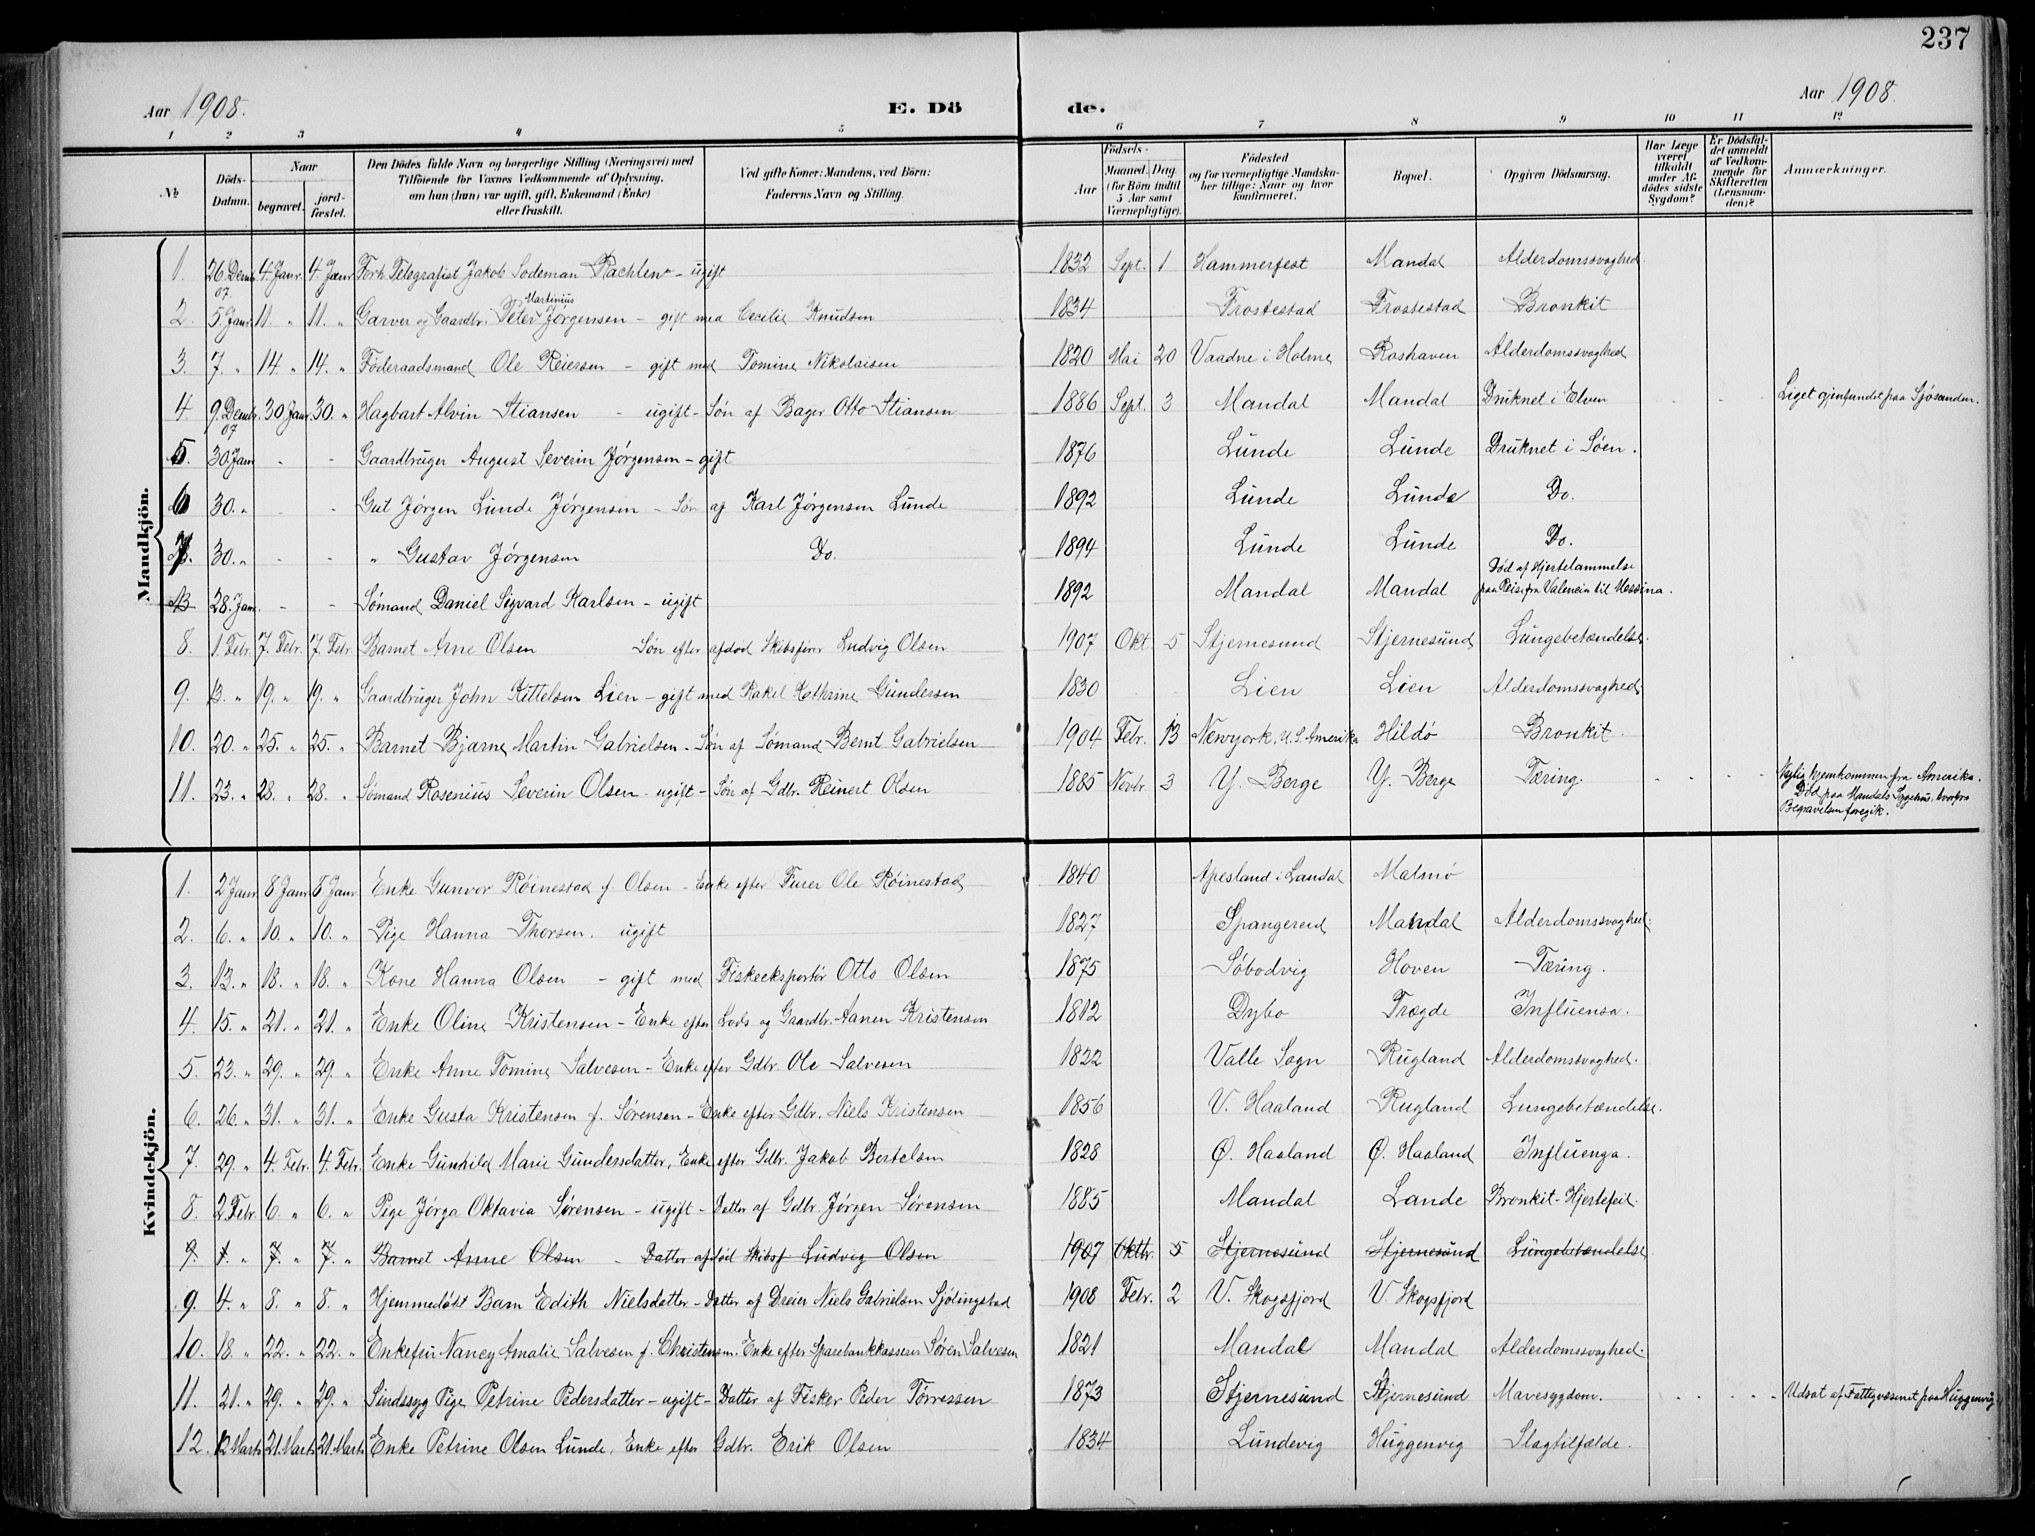 237
Aar 1908. E. Dö de. Aar 1908.
1 2 3 4 5 6 7 8 9 10 11 12
No. Döds-Datum. Naar begravet. jord-fæstet. Den Dödes fulde Navn og borgerlige Stilling (Næringsvei) med Tilföiende for Voxnes Vedkommende af Oplysning, om han (hun) var ugift, gift, Enkemand (Enke) eller fraskilt. Ved gifte Koner: Mandens, ved Börn: Faderens Navn og Stilling. Födsels- Aar Maaned. Dag. (for Börn indtil 5 Aar samt Værnepligtige). Födested og for værnepligtige Mandsku-ber tillige: Naar og hvor konfirmeret. Bopæl. Opgiven Dödsaarsag. Har Læge været tilkaldt under Af-dödes sidste Sygdom? Er Dödsfal-det anmeldt af Vedkom-mende for Skifteretten (Lensman-den)? Anmærkninger.
Mandkjön.
1. 26 Dembr. 07 4 Janr. 4 Janr. Forh. Telegrafist Jakob Sodeman Rachlew - ugift 1832 Sept. 1 Hammerfest Mandal Alderdomssvaghed
2. 5 Janr. 11. " 11. " Garver og Gaardbr. Peter Martinius Jørgensen - gift med Cecilie Knudsen 1834 Frostestad Frostestad Bronkit
3. 7. " 14. " 14. " Föderaadsmand Ole Reiersen - gift med Tomine Nikolaisen 1820 Mai 20 Vaadne i Holme Roshaven Alderdomssvaghed
4 9. Dembr. 07 30 Janr. 30. " Hagbart Alvin Stiansen - ugift - Søn af Bager Otto Stiansen 1886 Sept. 3 Mandal Mandal Druknet i Elven - - Liget gjenfundet paa Sjøsanden.
5. 30 Jan - - Gaardbruger August Severin Jørgensen - gift 1876 Lunde Lunde Druknet i Søen.
6 30. " - - Gut Jørgen Lunde Jørgensen - Søn af Karl Jørgensen Lunde 1892 Lunde Lunde Do.
7. 30. " - - " Gustav Jørgensen Do. 1894 Lunde Lunde Do.
28. Jan. - - Sømand Daniel Sigvard Karlsen - ugift 1892 Mandal Mandal Død af Hjertelammelse paa Reise fra Valencia til Messina.
8. 1. Febr. 7. Febr. 7 Febr. Barnet Arne Olsen Søn efter afdød Skibsfører Ludvig Olsen 1907 Okt. 5 Stjernesund Stjernesund Lungebetændelse.
9. 13. " 19. " 19. " Gaardbruger John Kittelsen Lien - gift med Rakel Kathrine Gundersen 1830 Lien Lien Alderdomssvaghed
10. 20. " 25. " 25. " Barnet Bjarne Martin Gabrielsen - Søn af Sømand Bernt Gabrielsen 1904 Febr. 13 Newyork, U. S. Amerika Hildø Bronkit.
11. 23. " 28. " 28. " Sømand Rosenius Severin Olsen - ugift - Søn af Gdbr. Reinert Olsen 1885 Novbr 3 Y. Berge Y. Berge Tæring. - - - Nylig hjemkommen fra Amerika. Død paa Mandals Sygehus, hvorfra Begravelsen foregik.
Kvindekjön.
1. 2 Janr 8 Janr 8 Janr. Enke Gunvor Röinestad f. Olsen - Enke efter Furer Ole Röinestad 1840 Apesland i Laudal Malmø
2. 6. " 10. " 10. " Pige Hanna Thorsen. ugift 1827 Spangereid Mandal Alderdomssvaghed.
3. 13. " 18. " 18. " Kone Hanna Olsen - gift med Fiskeeksportør Otto Olsen 1875 Søbodvig Hoven Tæring.
4. 15. " 21. " 21. " Enke Oline Kristensen - Enke efter Lods og Gaardbr. Aanen Kristensen 1812 Dybo Trægde Influensa.
5. 23. " 29. " 29. " Enke Anne Tomine Salvesen - Enke efter Gdbr. Ole Salvesen 1822 Valle Sogn Rugland Alderdomssvaghed.
6. 26. " 31. " 31. " Enke Gusta Kristensen f. Sørensen - Enke efter Gdbr. Niels Kristensen 1856 V. Haaland Rugland Lungebetændelse.
7. 29. " 4. Febr. 4 Febr. Enke Gunhild Marie Gundersdatter, Enke efter Gdbr. Jakob Bertelsen 1828 Ø. Haaland Ø. Haaland Influenza.
8. 2 Febr. 6. " 6. " Pige Jørga Oktavia Sørensen - ugift - Datter af Gdbr. Jørgen Sørensen 1885 Mandal Lande Bronkit - Hjertefeil.
9. 1. " 7. " 7. " Barnet Anne Olsen - Datter afdød Skibsf Ludvig Olsen 1907 Oktbr. 5 Stjernesund Stjernesund Lungebetændelse
9. 4. " 8. " 8. " Hjemmedøbt Barn Edith Nielsdatter - Datter af Dreier Niels Gabrielsen Sjölingstad 1908 Febr. 2 V. Skogsfjord V. Skogsfjord
10. 18. " 22. " 22. " Enkefru Nancy Amalie Salvesen f. Christensen. Enke efter Sparebankkasserer Søren Salvesen 1821 Mandal Mandal Alderdomssvaghed.
11. 21. " 29. " 29. " Sindssyg Pige Petrine Pedersdatter - ugift - Datter af Fisker Peder Tørressen 1873 Stjernesund Stjernesund Mavesygdom. - - - Udsat af Fattigvæsenet paa Huggenvig
12. 12 Marts 21. Marts 21. Marts Enke Petrine Olsen Lunde, Enke efter Gdbr. Erik Olsen 1834 Lundevig Huggenvig Slagtilfælde.